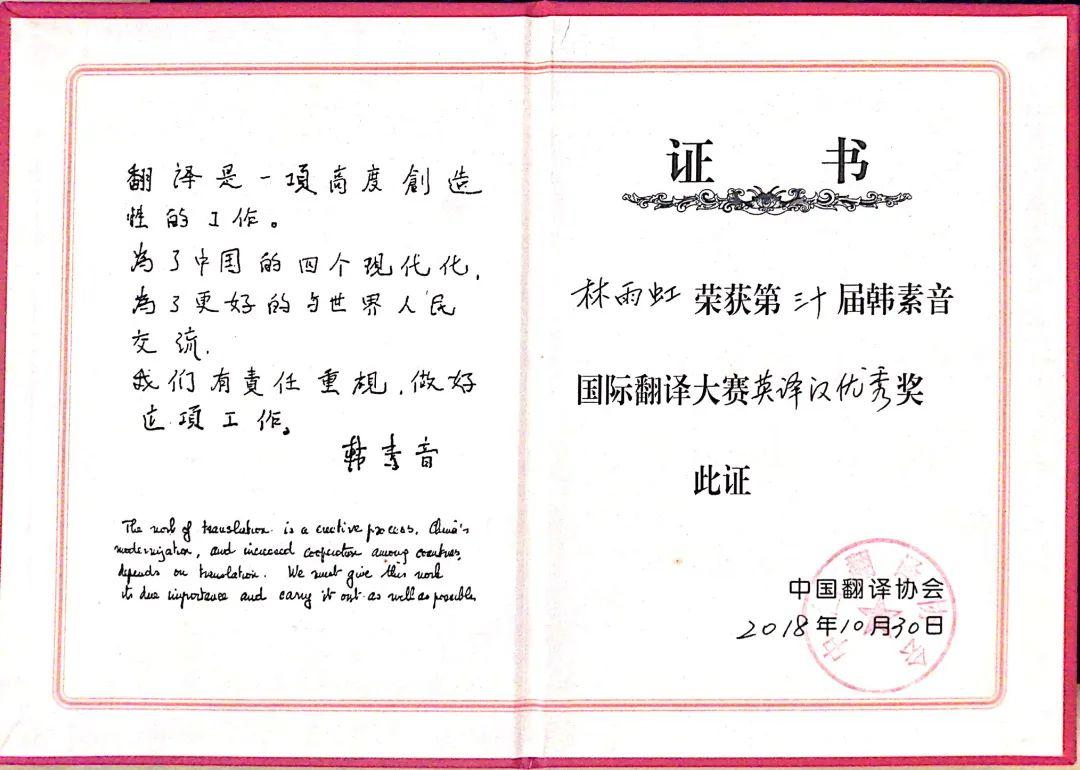 翻译是一項高度創造
性的工作。
為了中国的四个现代化,
為了更好的与世界人民
交流.
我们有責任重视,做好
这項工作。
韩素音
The work of translation is a creative process. China's
modernization, and increased cooperation among countries,
depends on translation. We must give this work
its due importance and carry it out as well as possible.
证 书
林雨虹 荣获第 三十 届韩素音
国际翻译大赛英译汉优秀奖
此证
中国翻译协会
2018年10月30日